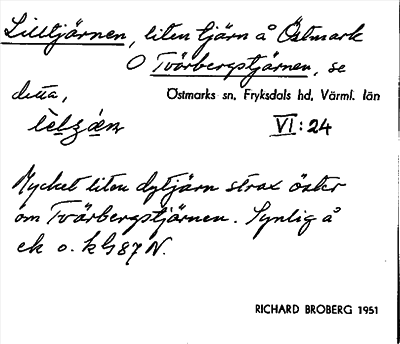 Lilltjärnen, liten tjärn å Östmark
O Tvärbergstjärnen, se
detta,
Östmarks sn, Fryksdals hd, Värml. län
VI:24
Mycket liten dytjärn strax öster
om Tvärbergstjärnen. Synlig å
ek o. k G87N.
RICHARD BROBERG 1951